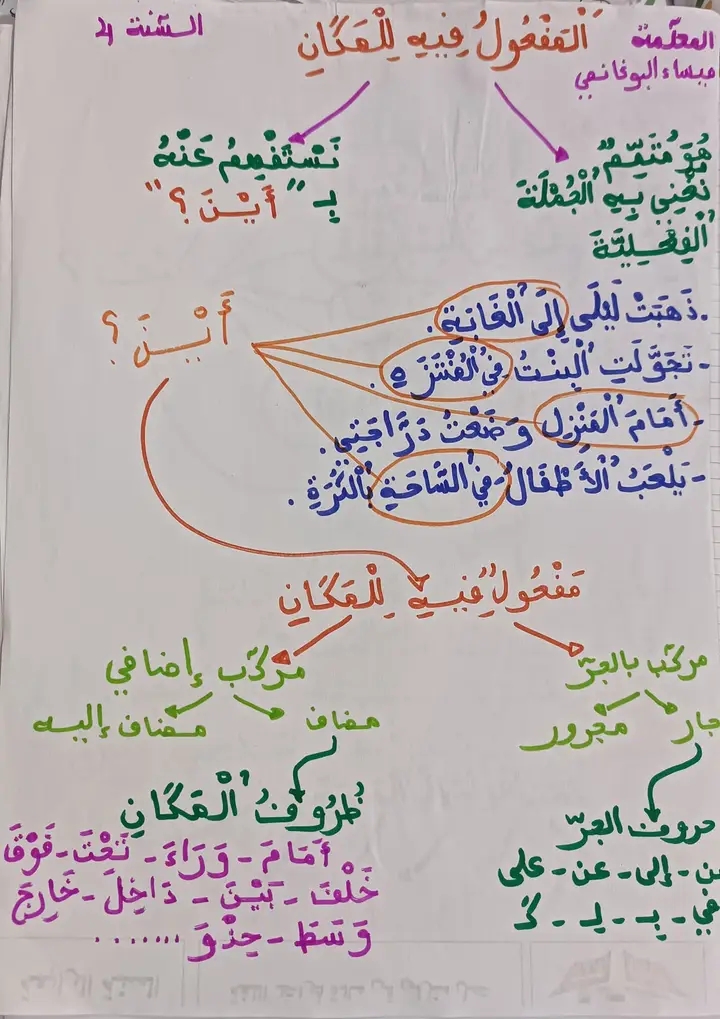 المعلّمة
ميساء البوغانمي
السّنة 4
اَلْمَفْعُولُ فِيهِ لِلْمَكَانِ
هُوَ مُتَمِّمٌ
نُغْنِي بِهِ الْجُمْلَةَ
الْفِعْلِيَّةَ
نَسْتَفْهِمُ عَنْهُ
بِـ "أَيْنَ؟"
أَيْنَ؟
.ذَهَبَتْ لَيْلَى إِلَى الْغَابَةِ.
- تَجَوَّلَتِ الْبِنْتُ فِي الْمُنْتَزَهِ.
- أَمَامَ الْمَنْزِلِ وَضَعْتُ دَرَّاجَتِي.
- يَلْعَبُ الْأَطْفَالُ فِي السَّاحَةِ بِالْكُرَةِ.
مَفْعُولٌ فِيهِ لِلْمَكَانِ
مركّب بالجرّ
جار مجرور
حروف الجرّ
إلى - عن - على
في - بِـ - لِـ - كَـ
مركّب إضافي
مضاف مضاف إليه
ظُرُوفُ الْمَكَانِ
أَمَامَ - وَرَاءَ - تَحْتَ - فَوْقَ
خَلْفَ - بَيْنَ - دَاخِلَ - خَارِجَ
وَسَطَ - حِذْوَ .......